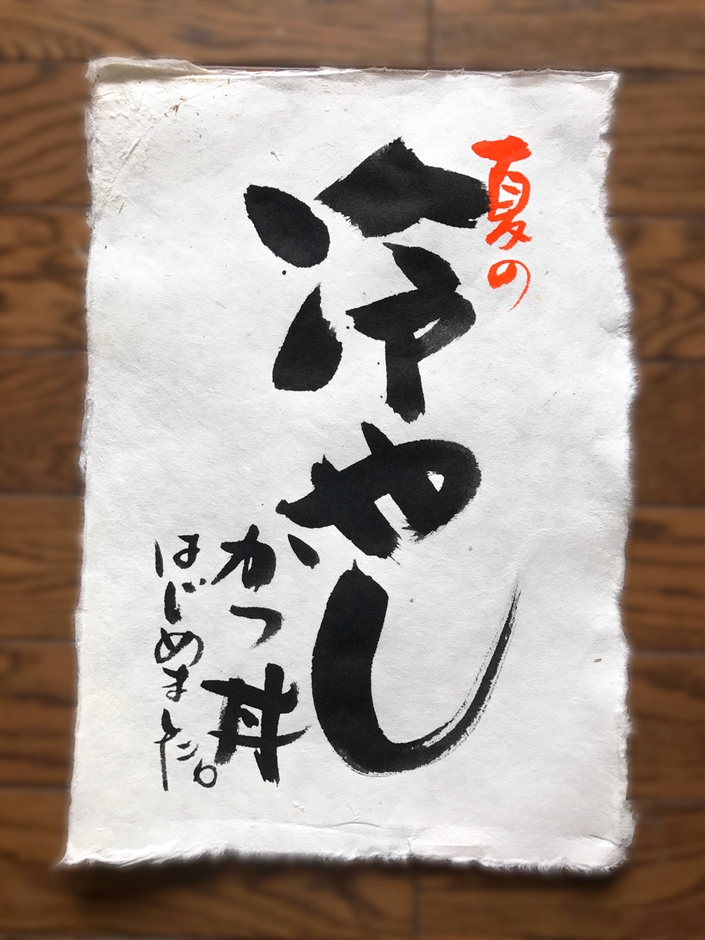 夏の
冷やし
かつ丼
はじめました。